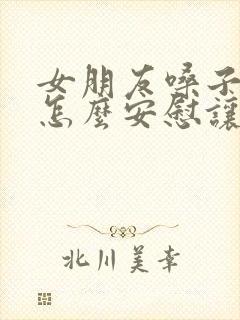 女朋友嗓子
怎麼安慰讓
北川美幸